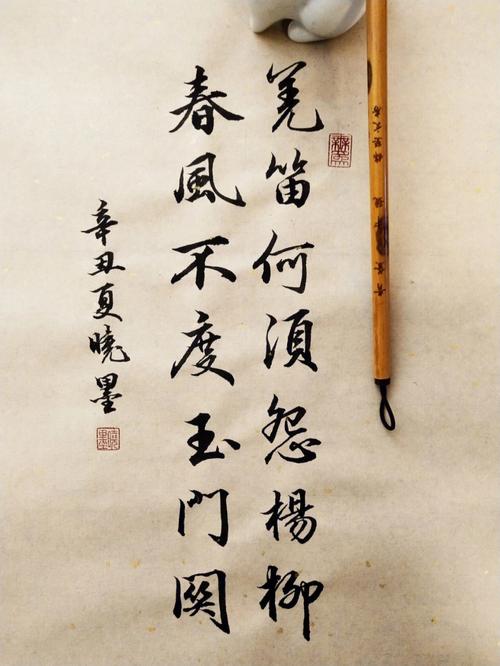 羌笛何須怨楊柳
春風不度玉門関
辛丑夏曉墨